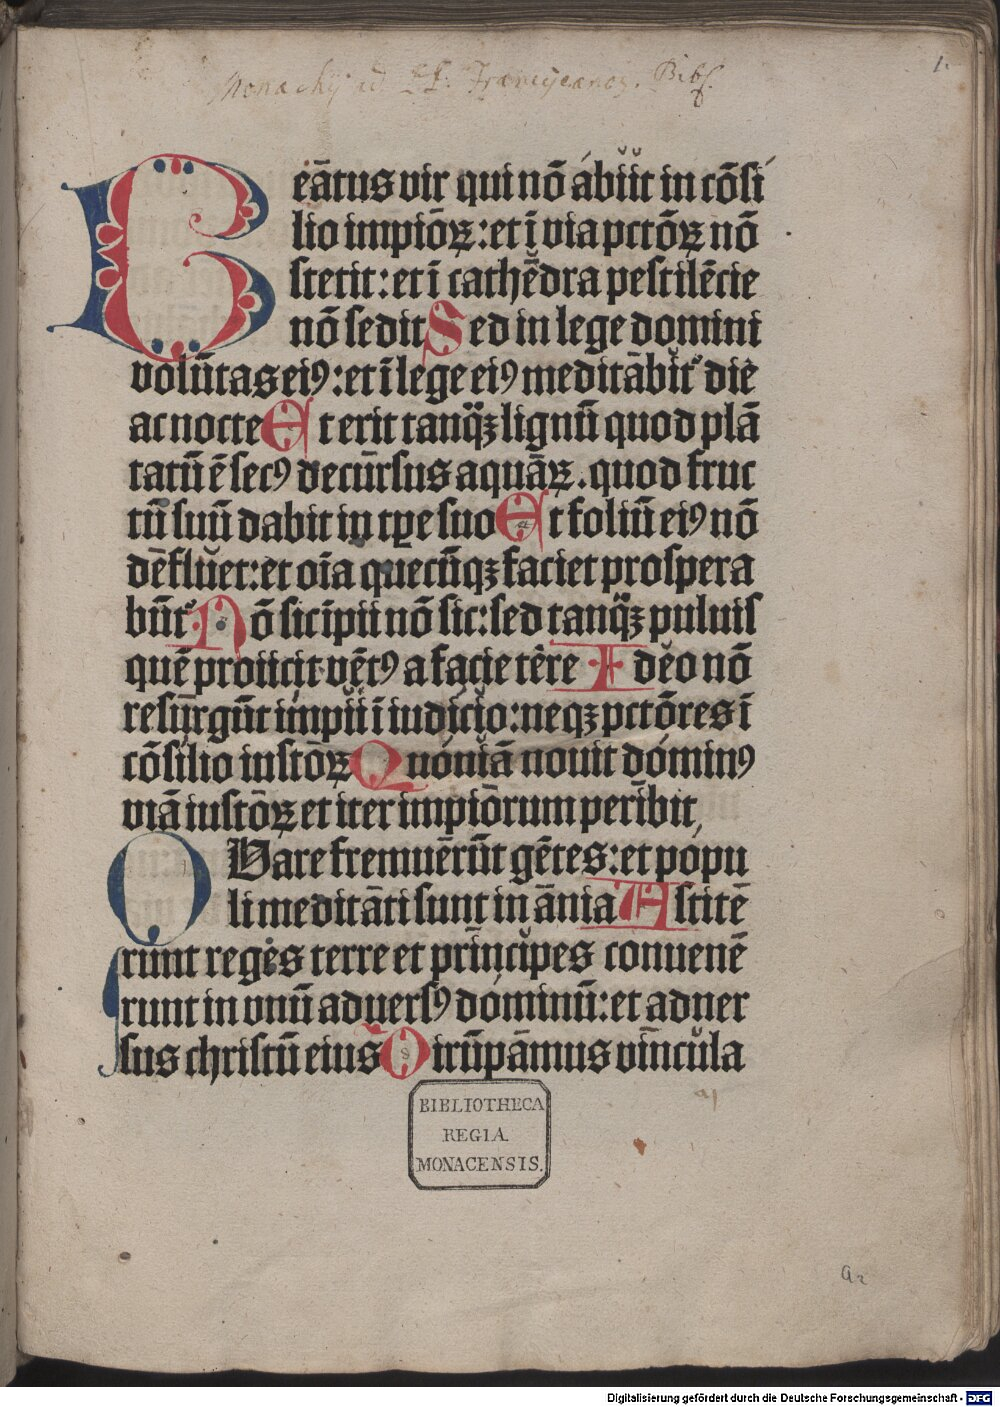 Monachij ad PP. Franciscanos. Bibl.
1.
Beātus vir qui nō ábiit in cōsí
lio impiōꝝ: et ī via pctōꝝ nō
stetit: et ī cathēdra pestilēcie
nō sedit Sed in lege domini
volūtas eiꝰ: et ī lege eiꝰ meditābit᷑ die
ac nocte Et erit tanqꝫ lignū quod plā
tatū ē secꝰ decūrsus aquāꝝ. quod fruc
tū suū dabit in tꝑe suo Et foliū eiꝰ nō
dēfluet: et oīa quecūqꝫ faciet prospera
būt᷑ Nō sic īpii nō sic: sed tanqꝫ puluis
quē proiicit vētꝰ a facie terre Ideo nō
resūrgūt impii ī iudicio: neqꝫ pctōres ī
cōsilio iustōꝝ Quóniā nouit dóminꝰ
viā iustōꝝ et iter impiōrum perībit,
QVare fremuērūt gētes: et pópu
li meditāti sunt in ānia Astitē
runt reges terre et prīncipes conuenē
runt in vnū aduersꝰ dóminū: et aduer
sus christū eius Dirūpāmus vīncula
BIBLIOTHECA
REGIA
MONACENSIS.
a2
Digitalisierung gefördert durch die Deutsche Forschungsgemeinschaft - DFG